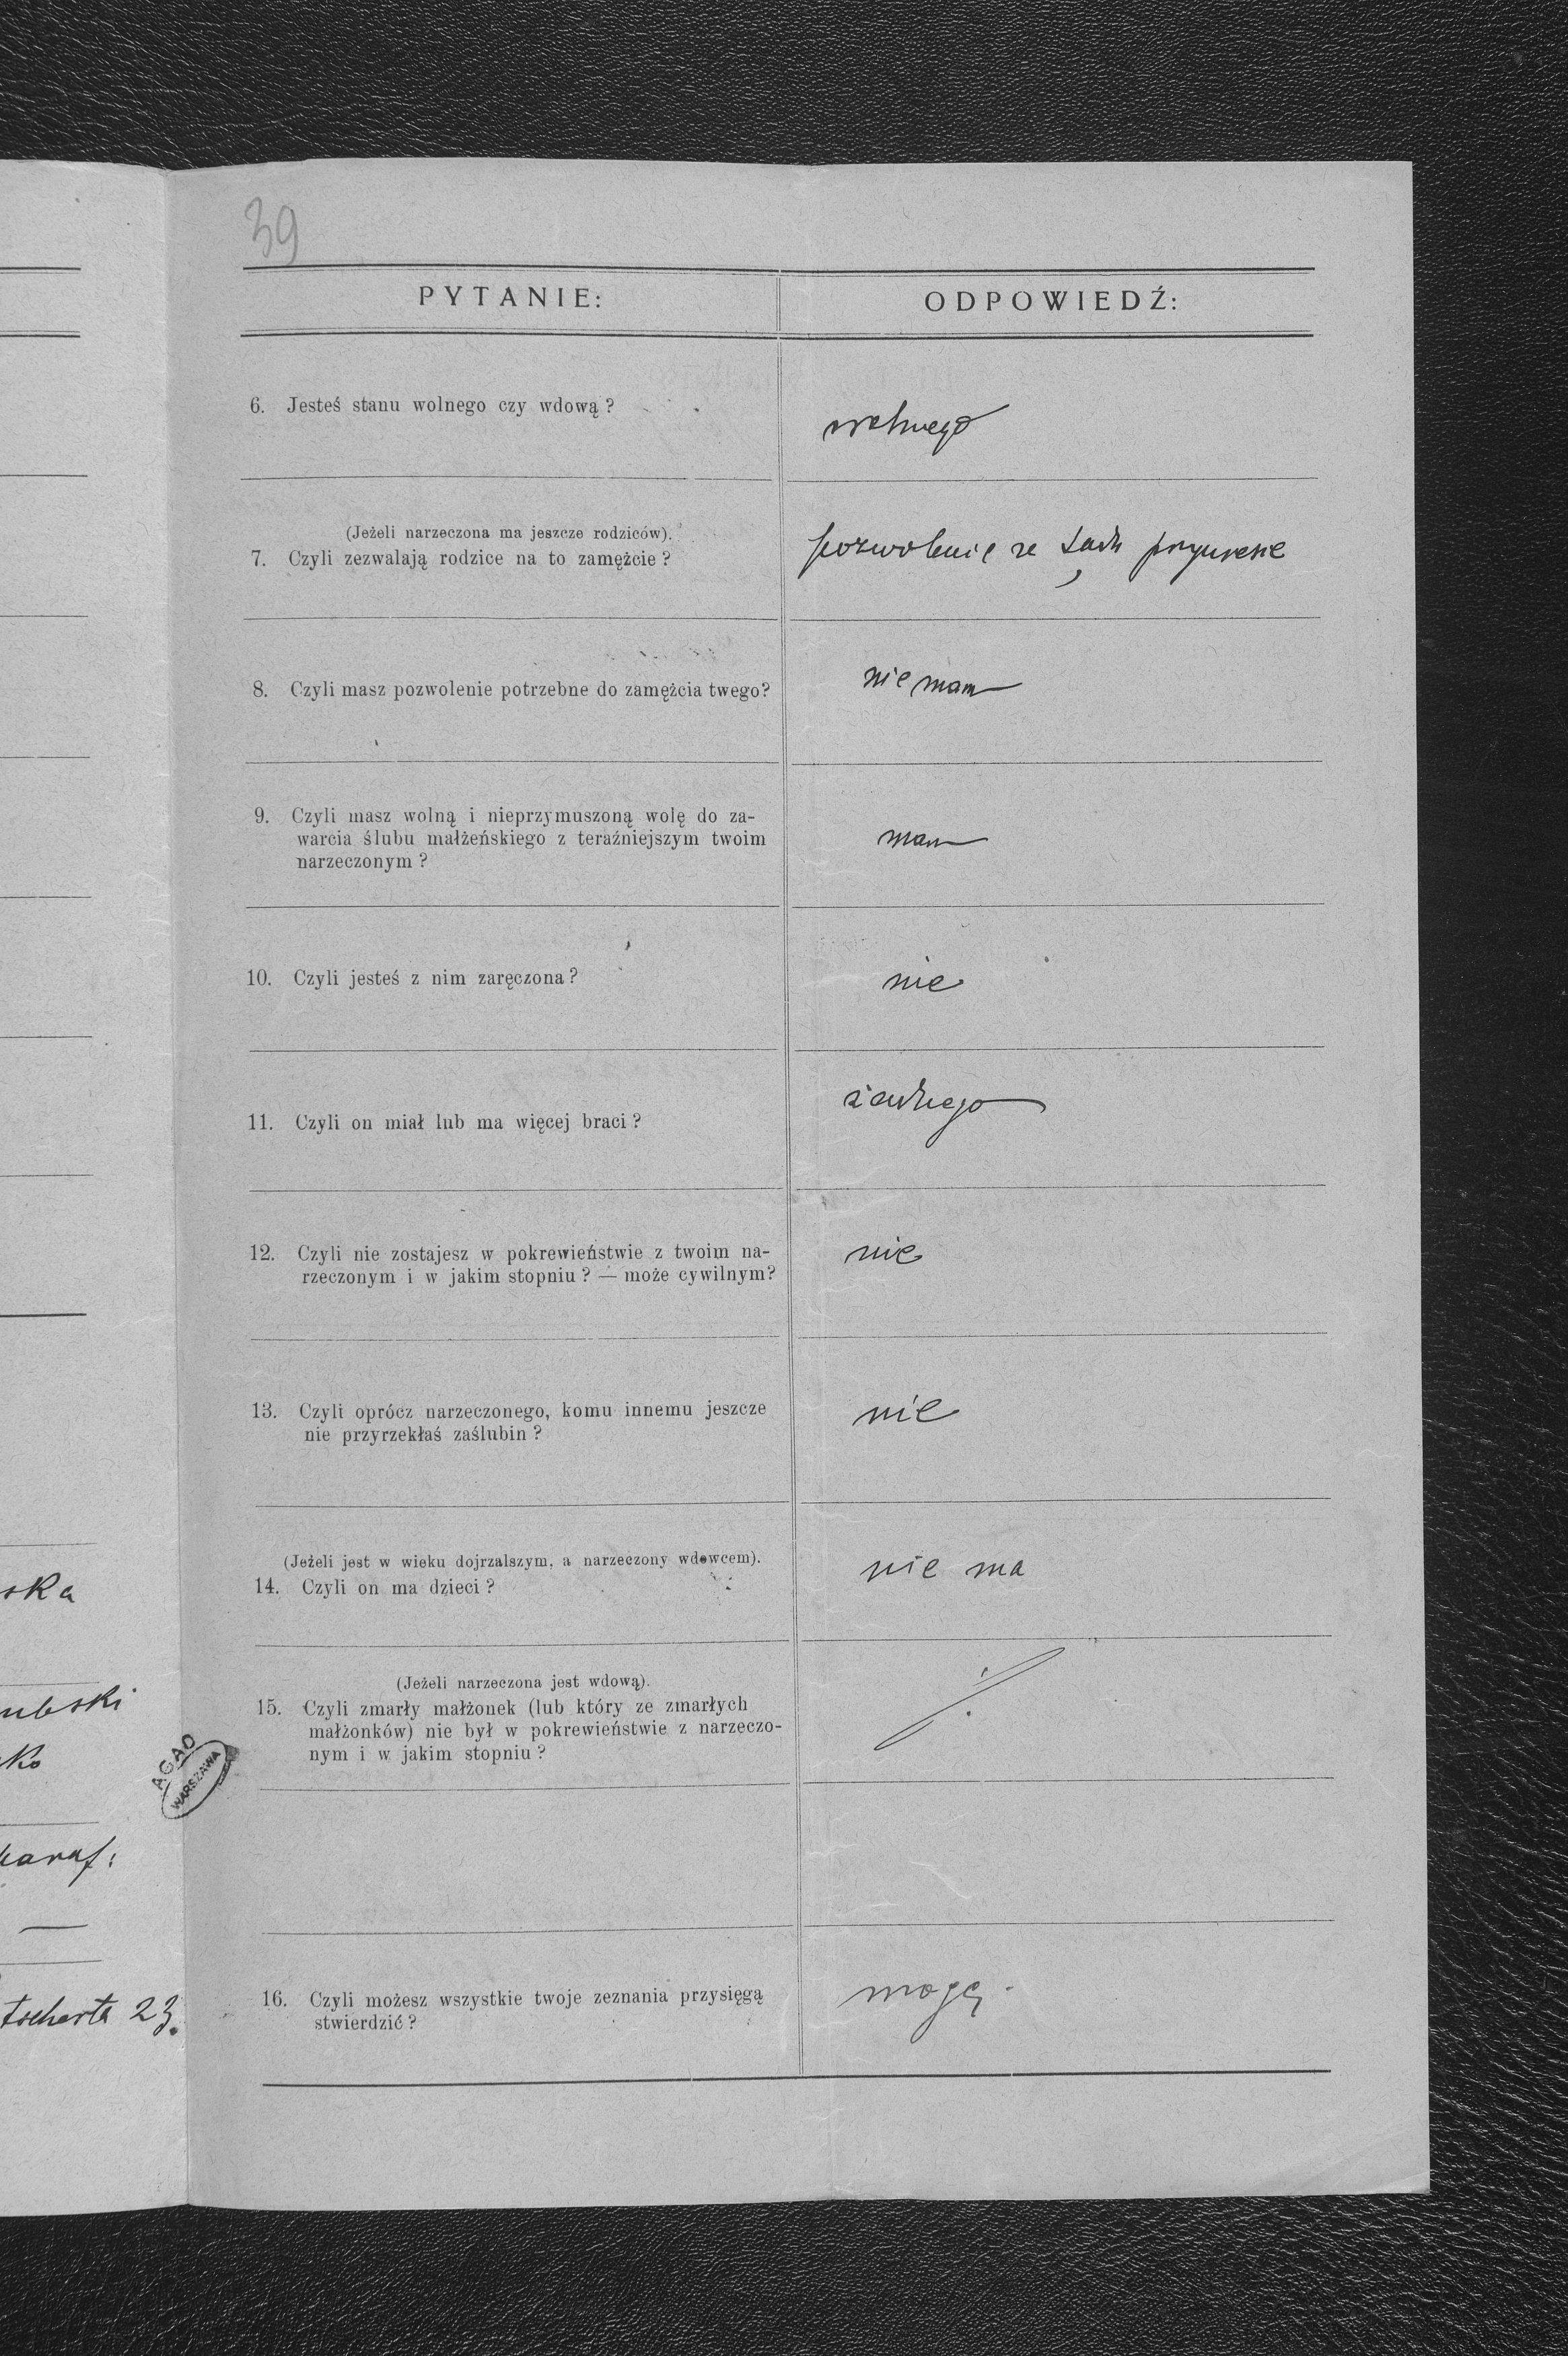 39
PYTANIE:
ODPOWIEDŹ:
6. Jesteś stanu wolnego czy wdową?
wolnego
(Jeżeli narzeczona ma jeszcze rodziców).
7. Czyli zezwalają rodzice na to zamężcie?
pozwolenie ze Sądu przyniesie
8. Czyli masz pozwolenie potrzebne do zamężcia twego?
nie mam
9. Czyli masz wolną i nieprzymuszoną wolę do za-
warcia ślubu małżeńskiego z teraźniejszym twoim
narzeczonym?
mam
10. Czyli jesteś z nim zaręczona?
nie
11. Czyli on miał lub ma więcej braci?
żadnego
12. Czyli nie zostajesz w pokrewieństwie z twoim na-
rzeczonym i w jakim stopniu? — może cywilnym?
nie
13. Czyli oprócz narzeczonego, komu innemu jeszcze
nie przyrzekłaś zaślubin?
nie
(Jeżeli jest w wieku dojrzalszym, a narzeczony wdowcem).
14. Czyli on ma dzieci?
nie ma
(Jeżeli narzeczona jest wdową).
15. Czyli zmarły małżonek (lub który ze zmarłych
małżonków) nie był w pokrewieństwie z narzeczo-
nym i w jakim stopniu?
16. Czyli możesz wszystkie twoje zeznania przysięgą
stwierdzić?
mogę.
ska
ubski
ko
paraf:
tscherta 23.
AGAD
WARSZAWA